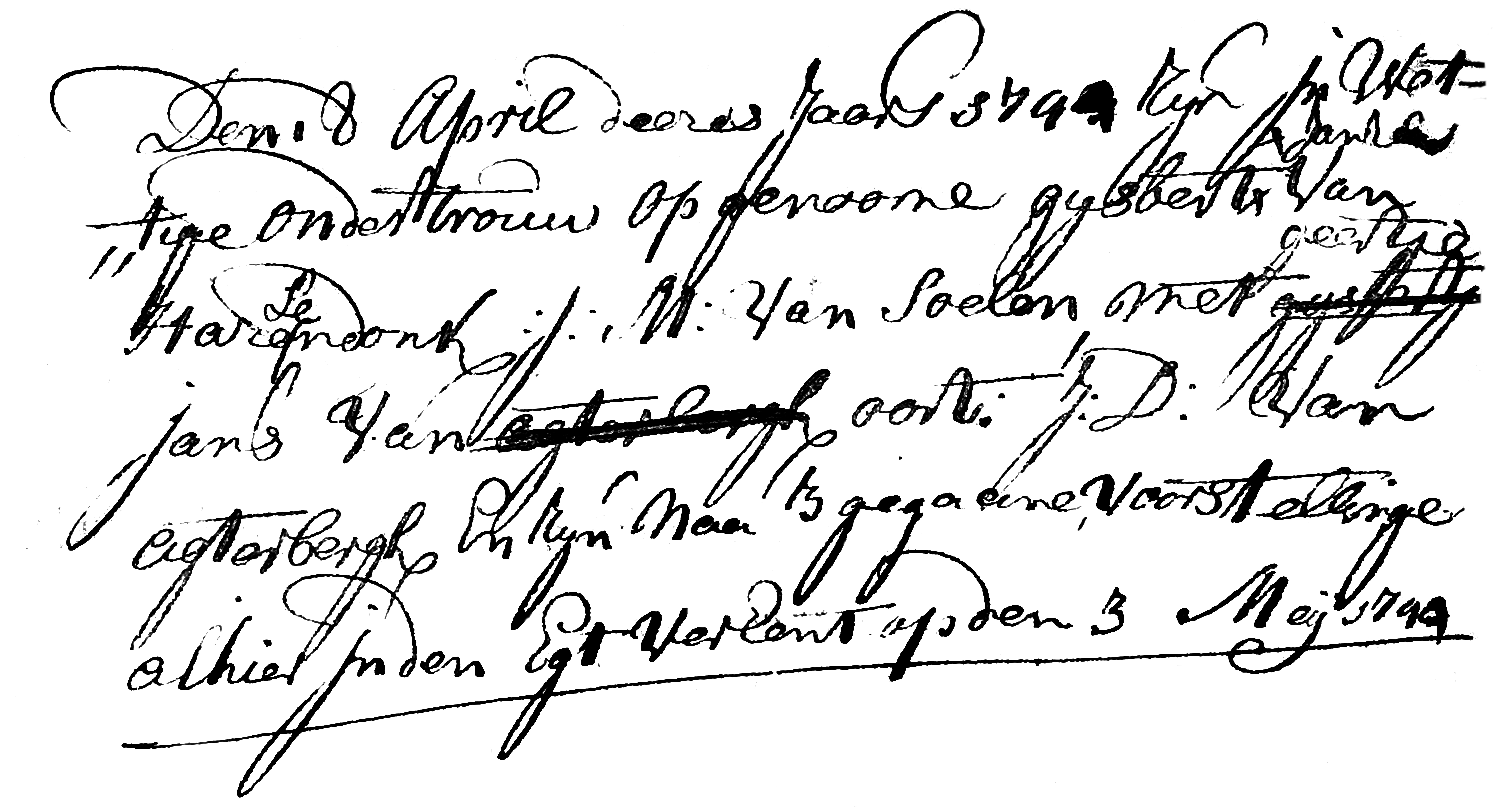 Den 8 April deeses Jaars 1794 zijn in Wet-
tige ondertrouw opgenoome gijsbert Jansen Van
Hasselendonk J: M: Van Soelen met geertje
jans Van agterbergh oort: J: D: Van
agterbergh En zijn Naa 3 gegaane Voorstellinge
alhier in den Egt Verkent op den 3 Meij 1794